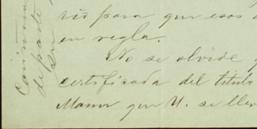 vis para que esos
en regla.
No se olvide
certificada del titulo
Manor que U. se lle
de parte
su